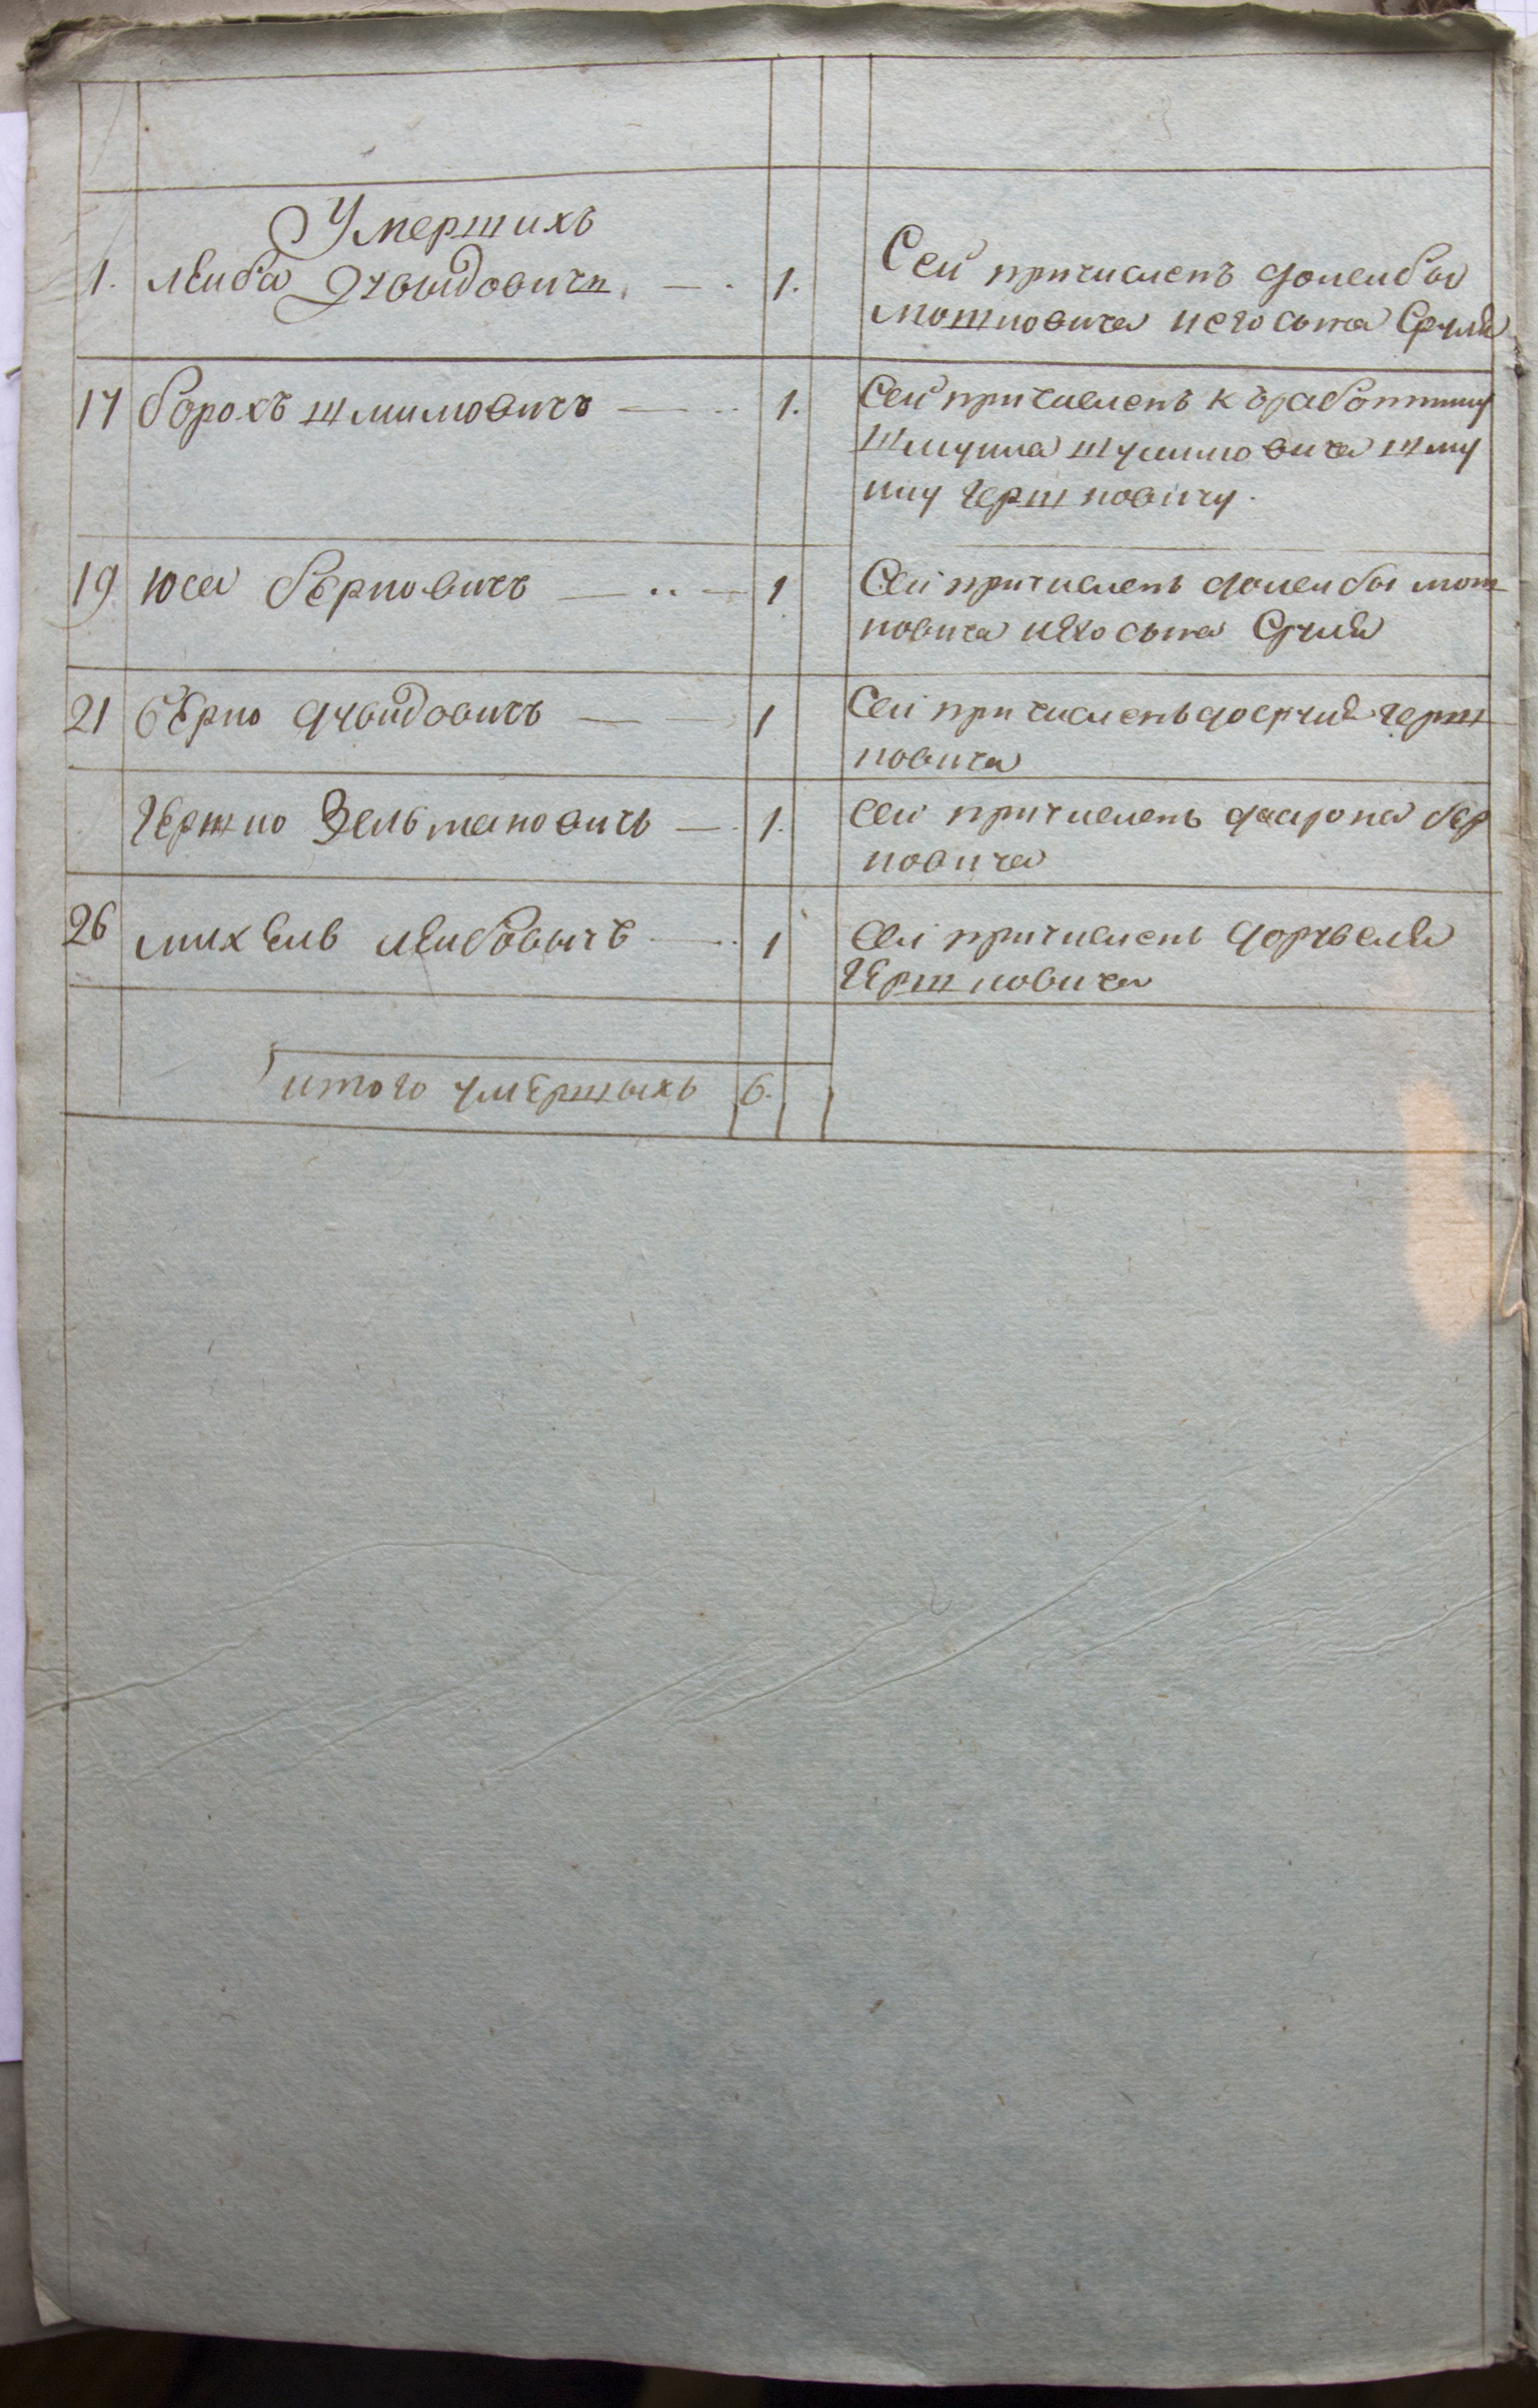 Умершихъ
1. лѣиба Давыдовичъ — . 1. Сей причисленъ долеибы
мошковича и его сына Сруля
17 борохъ шлиомовичъ — .. 1. Сей причисленъ къ работнику
шмуила шлиомовича шму
илу гершковичу.
19 Юсел бѣрковичъ — .. — 1 Сей причисленъ долеибы мош
ковича иѣго сына Сруля
21 бѣрко давидовичъ — — 1 Сей причисленъ досруля герш
ковича
гѣршко Зельмановичъ — . 1. сей причисленъ даарона бѣр
ковича
26 михѣль лѣибовычъ — .. 1 Сей причисленъ до
гѣршковича
итого умѣршыхъ 6.